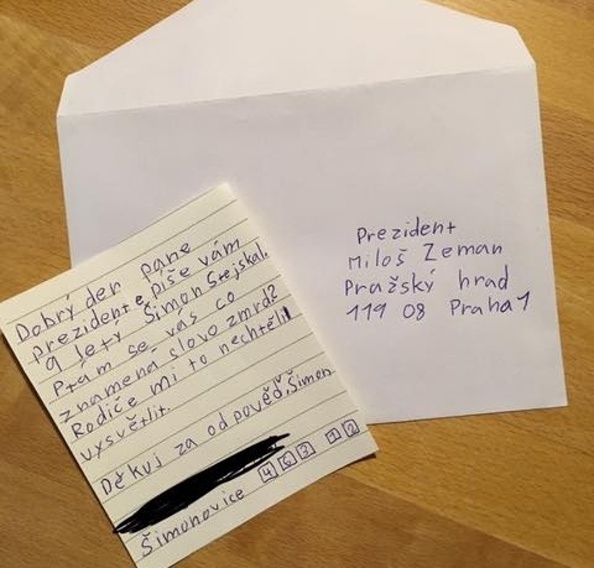 Dobrý den pane
prezidente, píše vám
9 letý Šimon Stejskal.
Ptám se vás co
znamená slovo zmrd?
Rodiče mi to nechtěli
vysvětlit.
Děkuj za odpověď, Šimon
Šimonovice 463 12
Prezident
Miloš Zeman
Pražský hrad
119 08 Praha 1